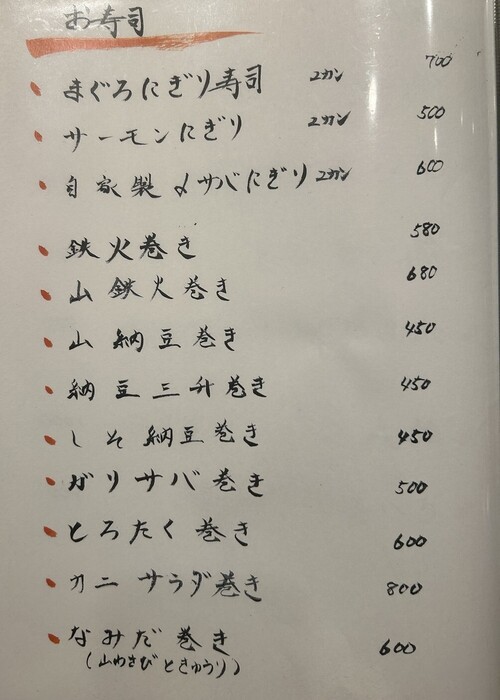 お寿司
まぐろにぎり寿司 2カン 700
サーモンにぎり 2カン 500
自家製〆サバにぎり 2カン 600
鉄火巻き 580
山鉄火巻き 680
山納豆巻き 450
納豆三升巻き 450
しそ納豆巻き 450
ガリサバ巻き 500
とろたく巻き 600
カニサラダ巻き 800
なみだ巻き 600
(山わさびときゅうり)